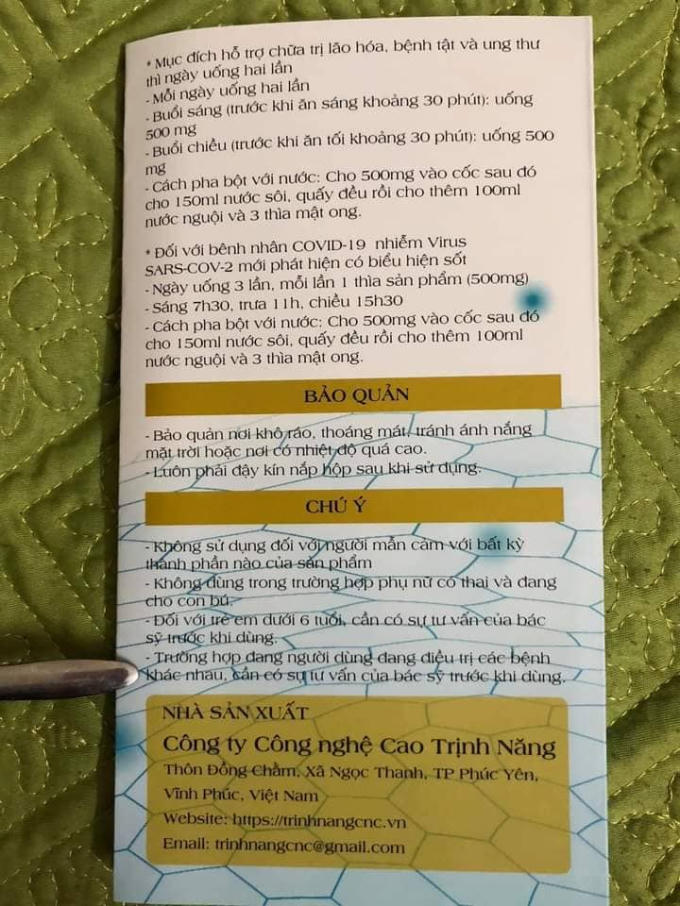 * Mục đích hỗ trợ chữa trị lão hóa, bệnh tật và ung thư
thì ngày uống hai lần
- Mỗi ngày uống hai lần
- Buổi sáng (trước khi ăn sáng khoảng 30 phút): uống
500 mg
- Buổi chiều (trước khi ăn tối khoảng 30 phút): uống 500
mg
- Cách pha bột với nước: Cho 500mg vào cốc sau đó
cho 150ml nước sôi, quấy đều rồi cho thêm 100ml
nước nguội và 3 thìa mật ong.
* Đối với bênh nhân COVID-19 nhiễm Virus
SARS-COV-2 mới phát hiện có biểu hiện sốt
- Ngày uống 3 lần, mỗi lần 1 thìa sản phẩm (500mg)
- Sáng 7h30, trưa 11h, chiều 15h30
- Cách pha bột với nước: Cho 500mg vào cốc sau đó
cho 150ml nước sôi, quấy đều rồi cho thêm 100ml
nước nguội và 3 thìa mật ong.
BẢO QUẢN
- Bảo quản nơi khô ráo, thoáng mát, tránh ánh nắng
mặt trời hoặc nơi có nhiệt độ quá cao.
- Luôn phải đậy kín nắp hộp sau khi sử dụng.
CHÚ Ý
- Không sử dụng đối với người mẫn cảm với bất kỳ
thành phần nào của sản phẩm
- Không dùng trong trường hợp phụ nữ có thai và đang
cho con bú.
- Đối với trẻ em dưới 6 tuổi, cần có sự tư vấn của bác
sỹ trước khi dùng.
- Trường hợp đang người dùng đang điều trị các bệnh
khác nhau, cần có sự tư vấn của bác sỹ trước khi dùng.
NHÀ SẢN XUẤT
Công ty Công nghệ Cao Trịnh Năng
Thôn Đồng Chằm, Xã Ngọc Thanh, TP Phúc Yên,
Vĩnh Phúc, Việt Nam
Website: https://trinhnangcnc.vn
Email: trinhnangcnc@gmail.com